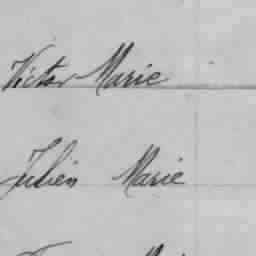 Victor Marie
Julien Marie